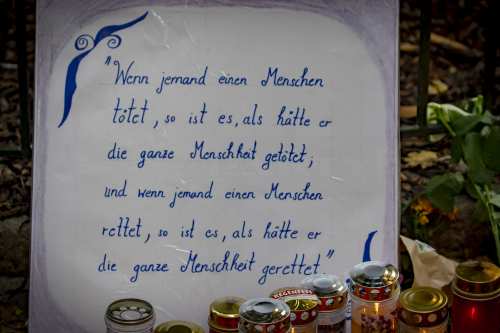 "Wenn jemand einen Menschen
tötet, so ist es, als hätte er
die ganze Menschheit getötet;
und wenn jemand einen Menschen
rettet, so ist es, als hätte er
die ganze Menschheit gerettet."
REGENFEST